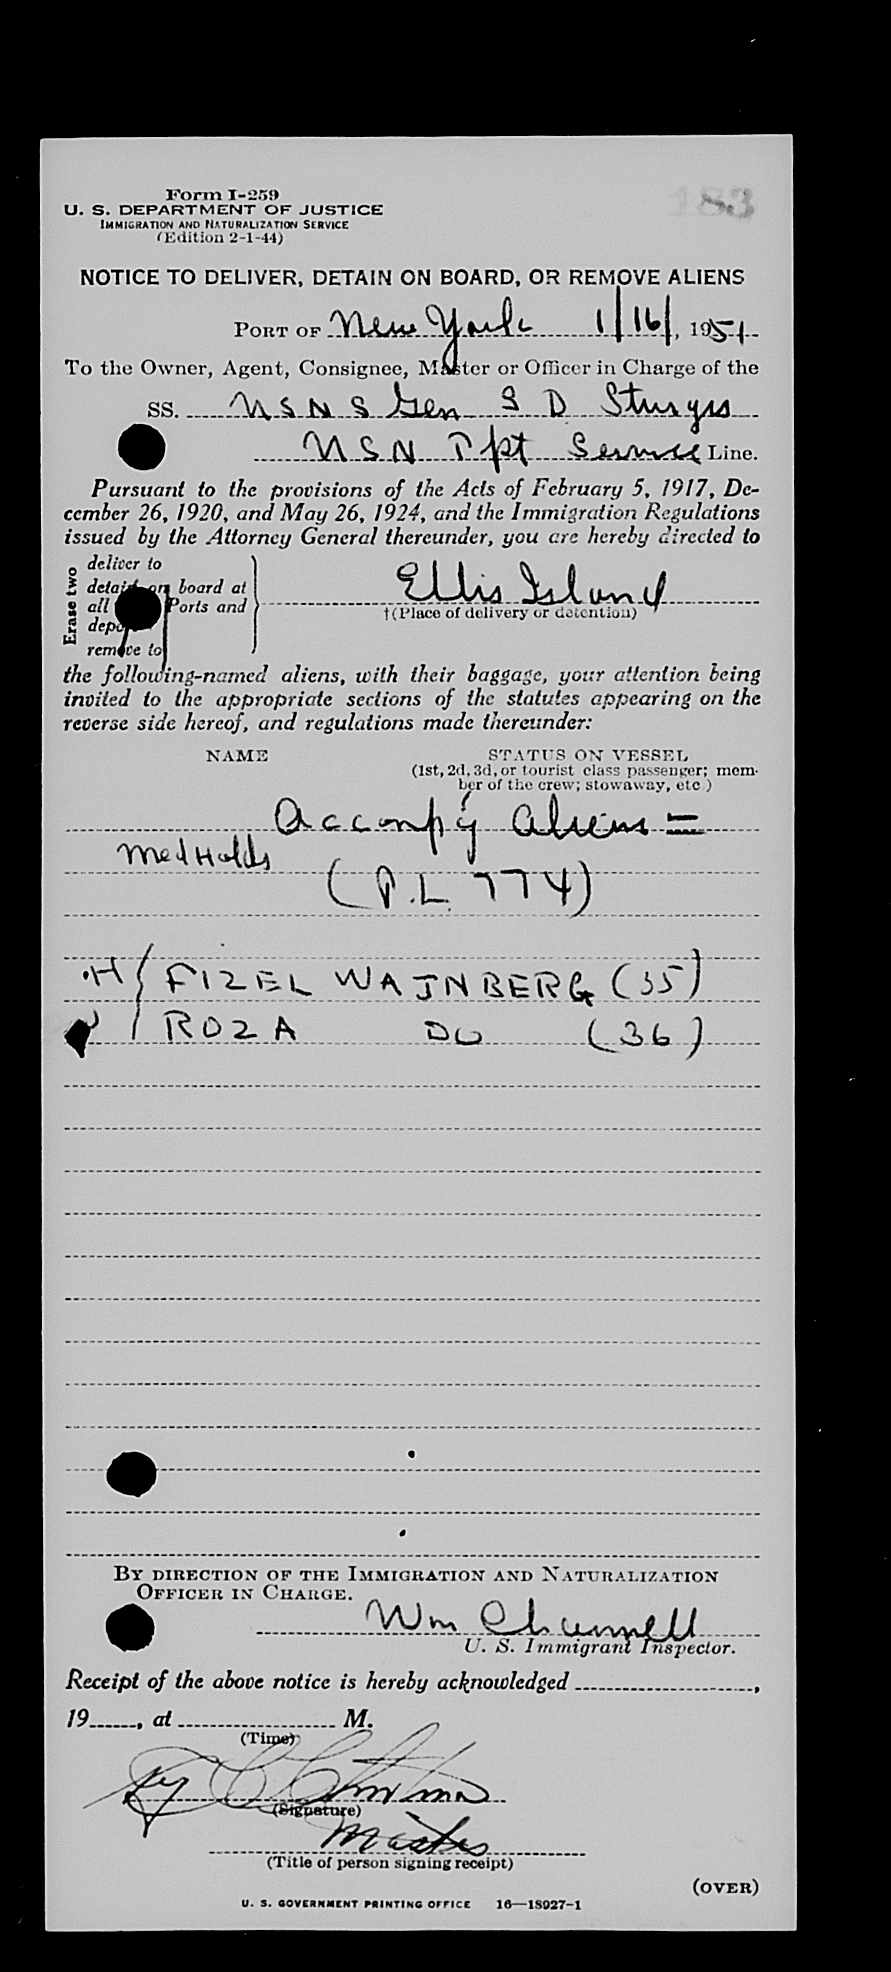 183
Form I-259
U. S. DEPARTMENT OF JUSTICE
IMMIGRATION AND NATURALIZATION SERVICE
(Edition 2-1-44)
NOTICE TO DELIVER, DETAIN ON BOARD, OR REMOVE ALIENS
PORT OF New York 1/16/, 1951
To the Owner, Agent, Consignee, Master or Officer in Charge of the
SS. USNS Gen S D Sturgis
USN Tpt Service Line.
Pursuant to the provisions of the Acts of February 5, 1917, De-
cember 26, 1920, and May 26, 1924, and the Immigration Regulations
issued by the Attorney General thereunder, you are hereby directed to
Erase two
deliver to
detain on board at
all Ports and
remove to
Ellis Island
†(Place of delivery or detention)
the following-named aliens, with their baggage, your attention being
invited to the appropriate sections of the statutes appearing on the
reverse side hereof, and regulations made thereunder:
NAME STATUS ON VESSEL
(1st, 2d, 3d, or tourist class passenger; mem-
ber of the crew; stowaway, etc.)
Accomp'g Aliens =
Med Holds
(P.L. 774)
H FIZEL WAJNBERG (35)
ROZA DO (36)
BY DIRECTION OF THE IMMIGRATION AND NATURALIZATION
OFFICER IN CHARGE.
Wm Channell
U. S. Immigrant Inspector.
Receipt of the above notice is hereby acknowledged ,
19 , at M.
(Time)
(Signature)
Master
(Title of person signing receipt)
(OVER)
U. S. GOVERNMENT PRINTING OFFICE 16—18927-1